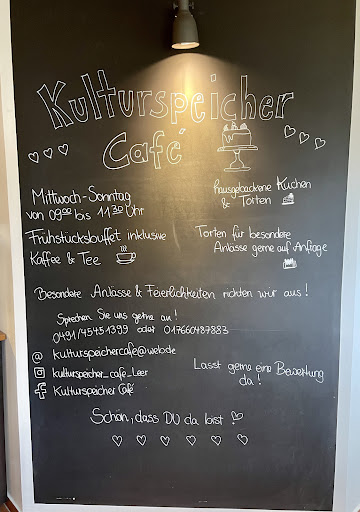 Kulturspeicher
Café
Mittwoch-Sonntag
von 09⁰⁰ bis 11³⁰ Uhr
Frühstücksbuffet inklusive
Kaffee & Tee
hausgebackene Kuchen
& Torten
Torten für besondere
Anlässe gerne auf Anfrage
Besondere Anlässe & Feierlichkeiten richten wir aus!
Sprechen Sie uns gerne an!
0491/45451399 oder 017660487883
@ kulturspeichercafe@web.de
kulturspeicher_cafe_Leer
Kulturspeicher Café
Lasst gerne eine Bewertung
da!
Schön, dass DU da bist!